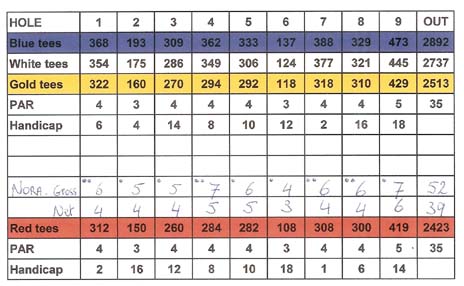 HOLE 1 2 3 4 5 6 7 8 9 OUT
Blue tees 368 193 309 362 333 137 388 329 473 2892
White tees 354 175 286 349 306 124 377 321 445 2737
Gold tees 322 160 270 294 292 118 318 310 429 2513
PAR 4 3 4 4 4 3 4 4 5 35
Handicap 6 4 14 8 10 12 2 16 18
NORA. Gross **6 *5 *5 **7 *6 *4 **6 **6 *7 52
Net 4 4 4 5 5 3 4 4 6 39
Red tees 312 150 260 284 282 108 308 300 419 2423
PAR 4 3 4 4 4 3 4 4 5 35
Handicap 2 16 12 8 10 18 1 6 14